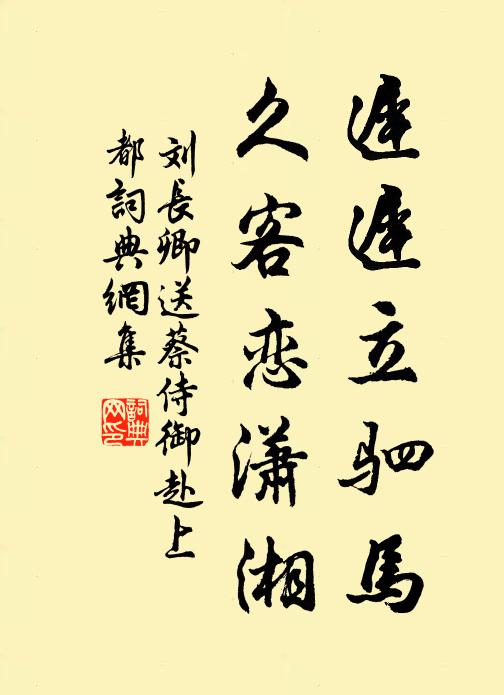 遲遲立驷馬
久客恋瀟湘
刘長卿送蔡侍御赴上
都詞典網集
詞典
网印